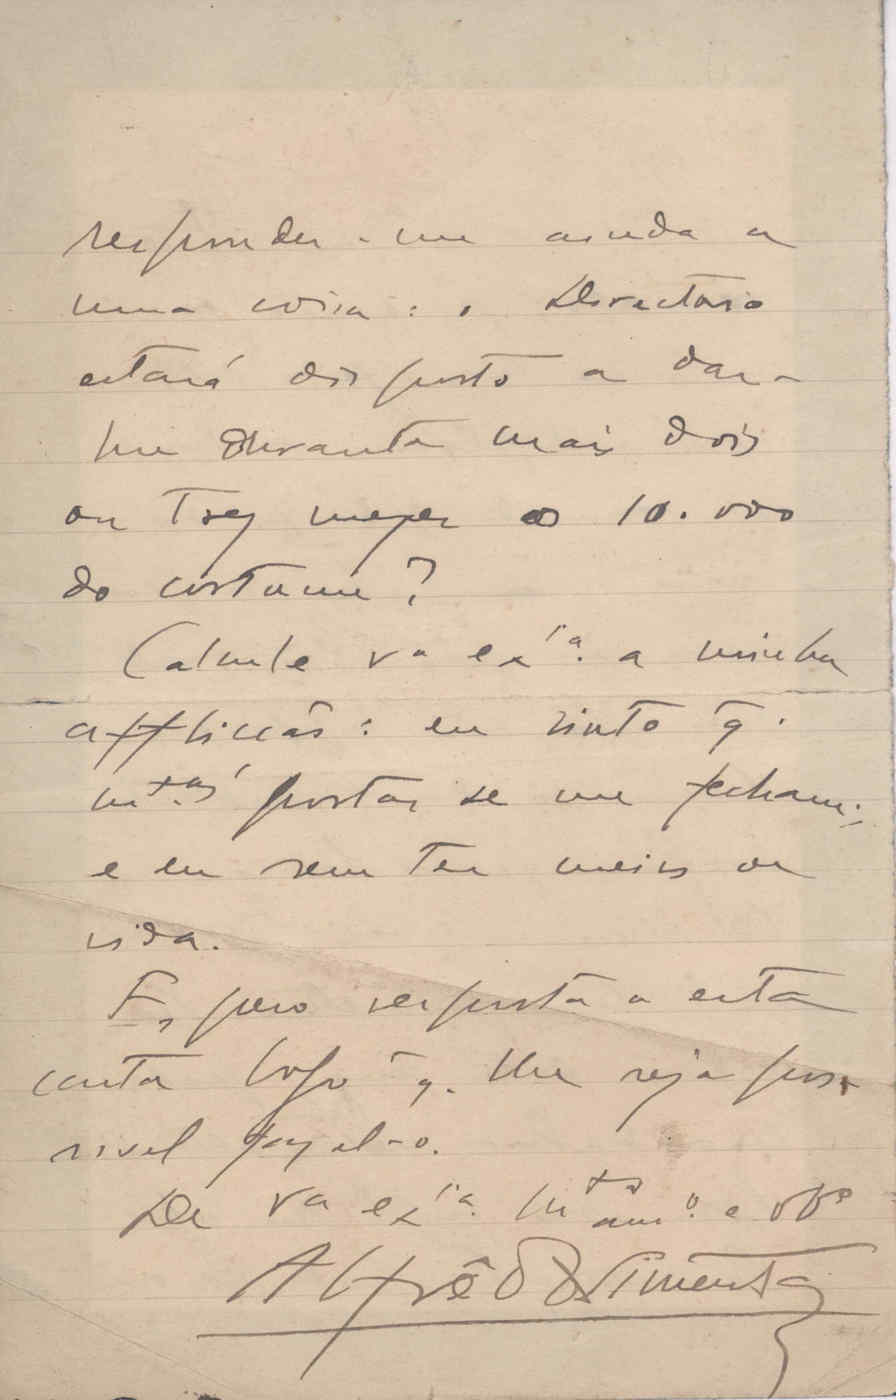 responder-me ainda a
uma coisa: o Directorio
estará disposto a dar-
me durante mais dois
ou trez mezes os 10.000
do costume?
Calcule va exia. a minha
afflicção: eu sinto q.
mtas. portas se me fecham;
e eu sem ter meios de
vida.
Espero resposta a esta
carta logo q. lhe seja pos-
sivel fazel-o.
De va exia. mto amo. e obo
Alfrêdo Pimenta